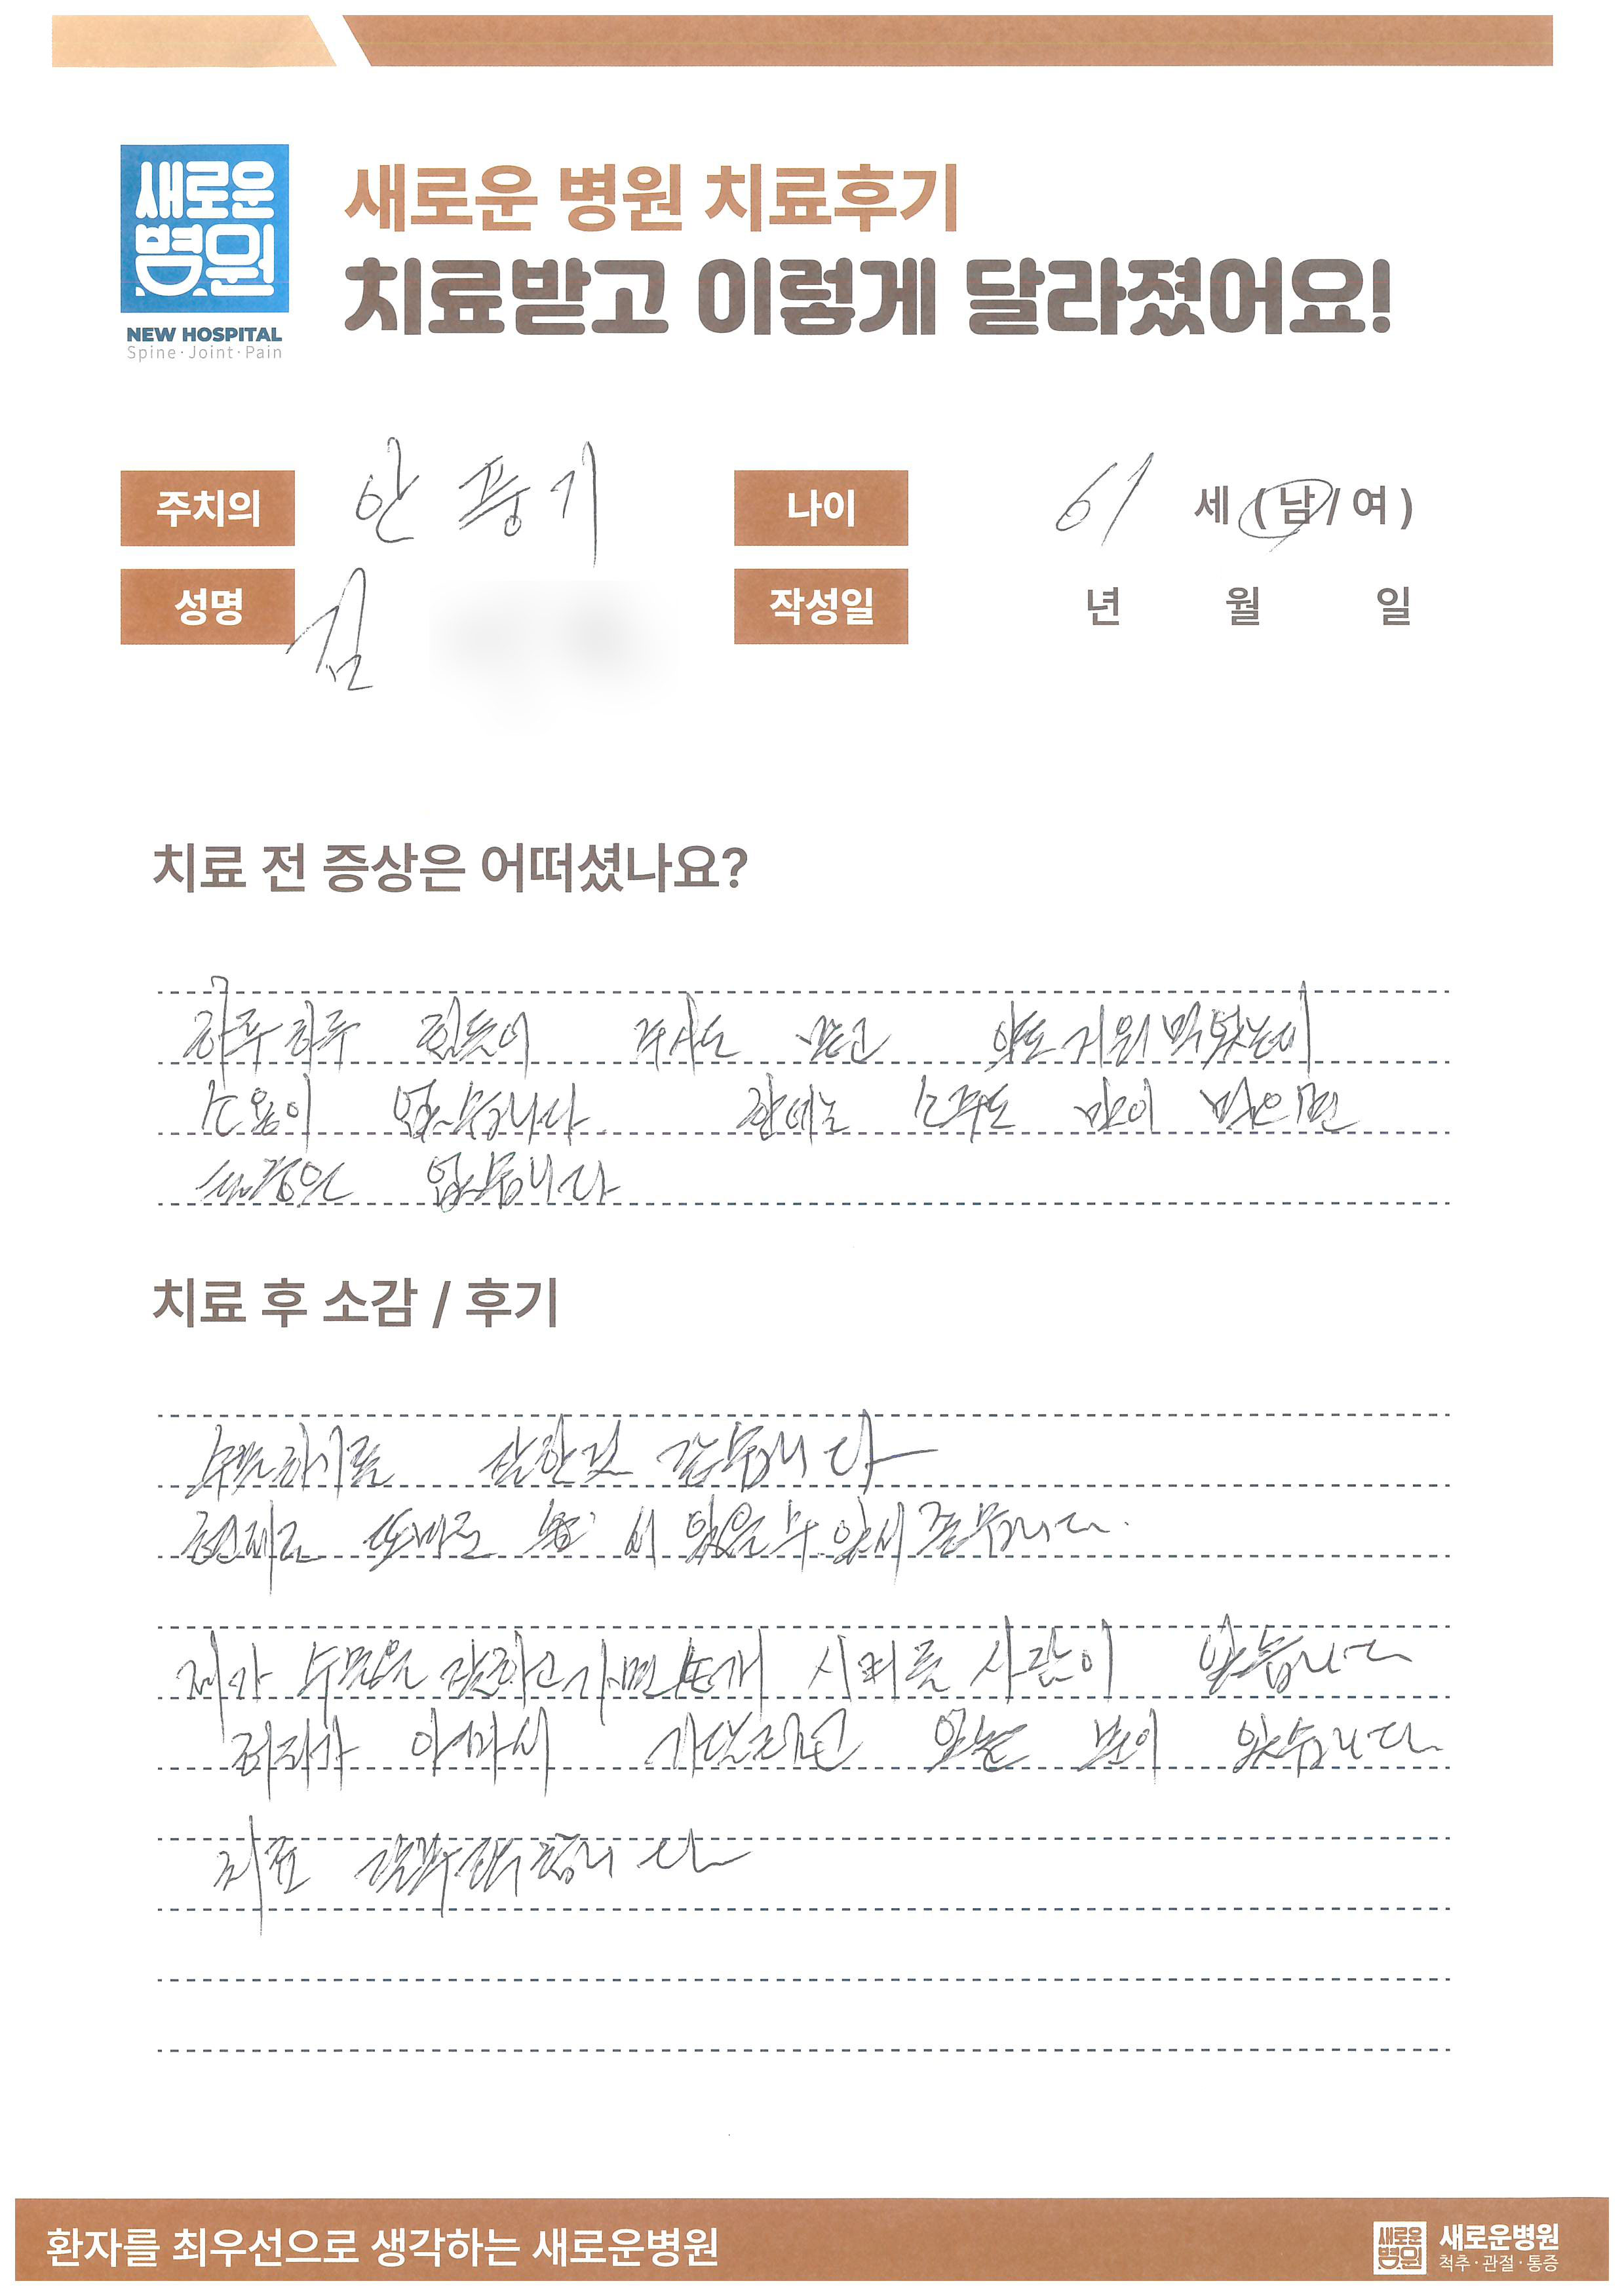 새로운
병원
NEW HOSPITAL
Spine·Joint·Pain
새로운 병원 치료후기
치료받고 이렇게 달라졌어요!
주치의 안풍기
나이 61 세 (남/여)
성명 김
작성일 년 월 일
치료 전 증상은 어떠셨나요?
하루하루 힘듯이 주사도 맞고 약도
소용이 없습니다 소주도 많이 먹으면
없습니다
치료 후 소감 / 후기
수술하기를 잘한것 같습니다
현재론 또바로 서 있을 수 있서
제가 수술을 잘하고 가면 시켜줄 사람이 있습니다
아파서 있습니다
치료
환자를 최우선으로 생각하는 새로운병원
새로운
병원
새로운병원
척추·관절·통증